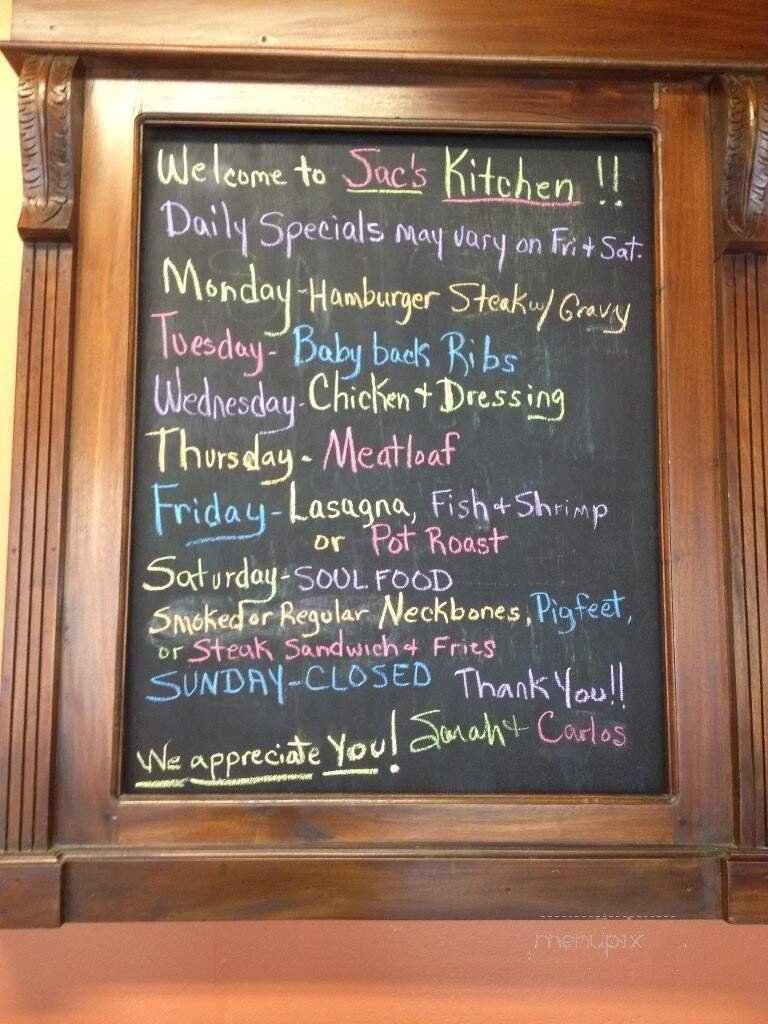 Welcome to Jac's Kitchen !!
Daily Specials may vary on Fri + Sat.
Monday - Hamburger Steak w/ Gravy
Tuesday - Baby back Ribs
Wednesday - Chicken + Dressing
Thursday - Meatloaf
Friday - Lasagna, Fish + Shrimp
or Pot Roast
Saturday - SOUL FOOD
Smoked or Regular Neckbones, Pigfeet,
or Steak Sandwich + Fries
SUNDAY - CLOSED Thank You!!
We appreciate You! Sarah + Carlos
menupix